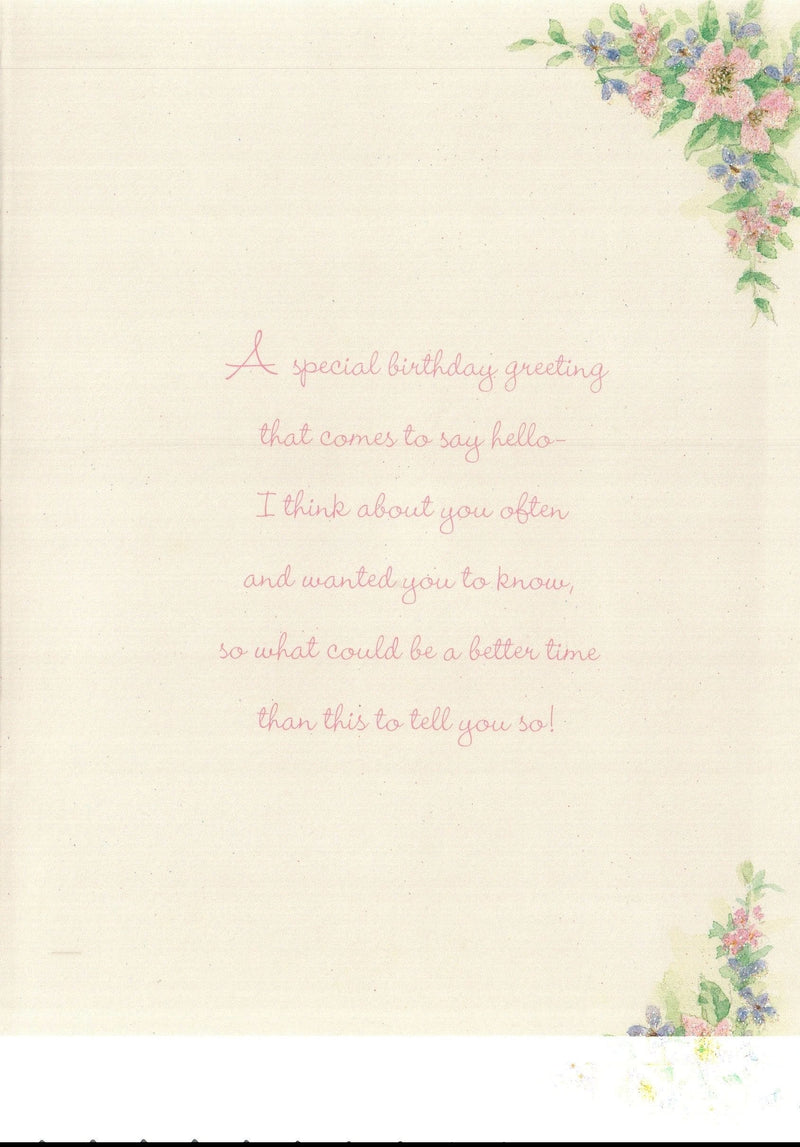 A special birthday greeting
that comes to say hello-
I think about you often
and wanted you to know,
so what could be a better time
than this to tell you so!